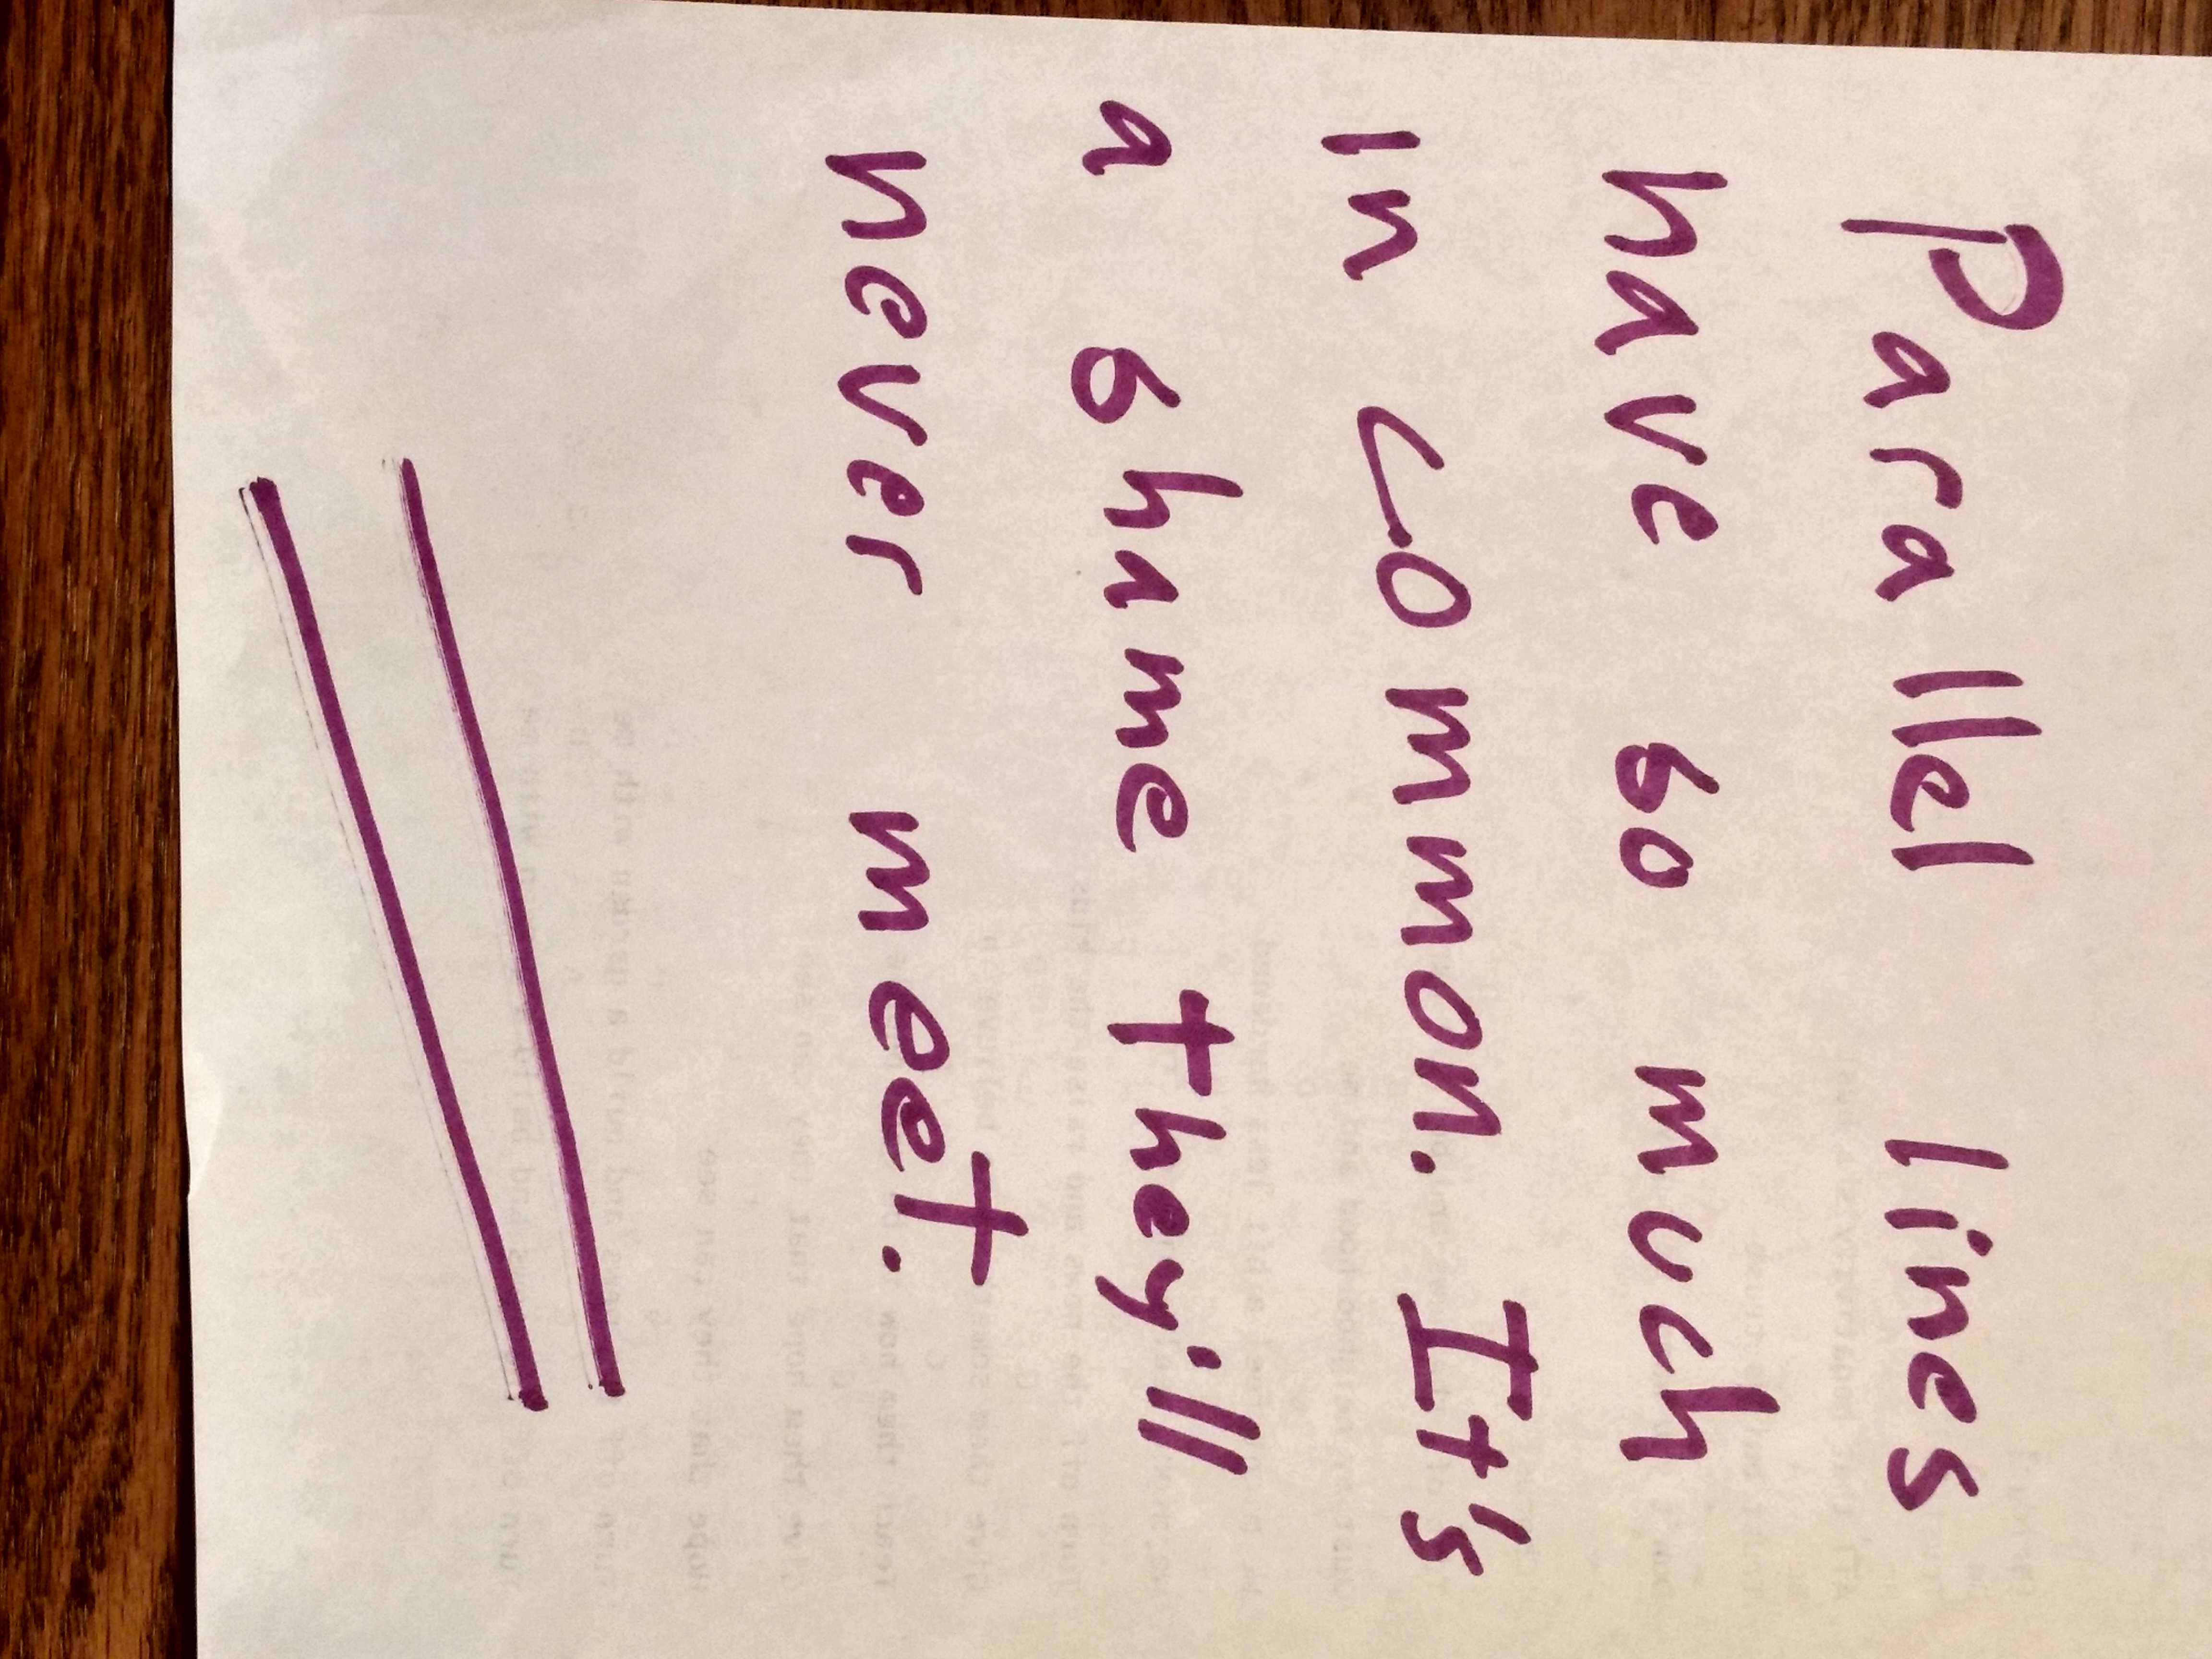 Parallel lines
have so much
in common. It's
a shame they'll
never meet.